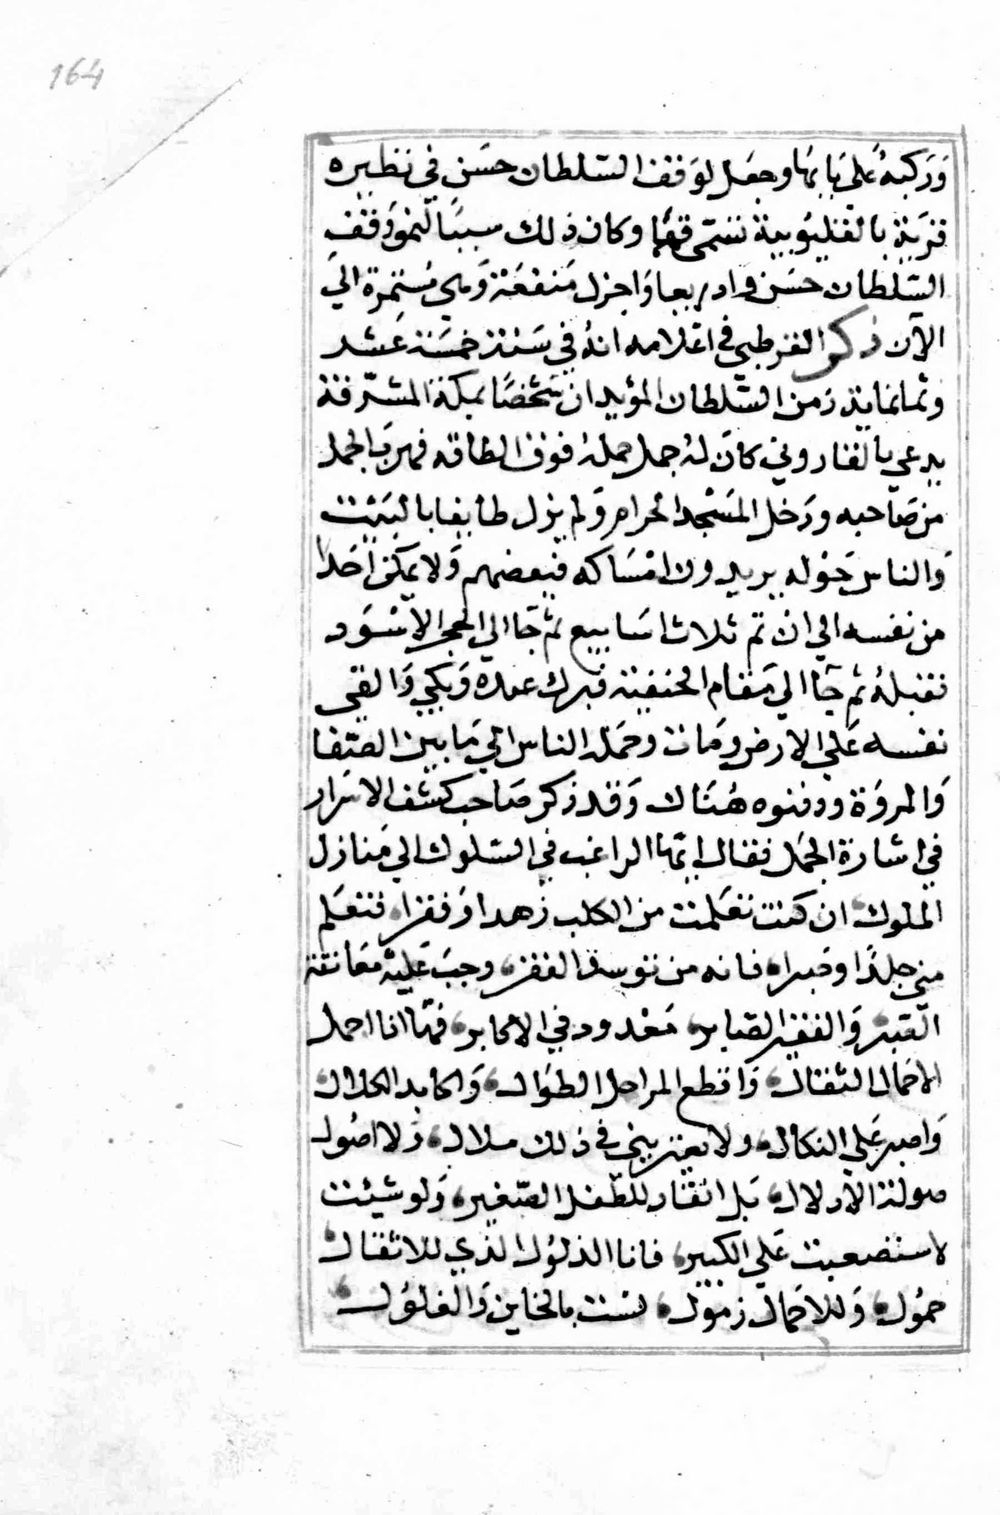 164
وَرَكبهُ عَلى بَابهَا وجعَل لوَقف السّلطان حسَن في نظيره
قريَة بالقليُوبيَة تسَمّى قهَا وكان ذلك سببَا لنموّ وَقفِ
السّلطان حسَن واد ريعا وَاجزل مَنفعَة وَهي مُستمِرة الي
الآن ذكر القرطبي في اعْلامه انهُ في سَنة خمسَة عشر
وثمانماية زمن السّلطان المؤيد ان شَخصًا بمكة المشرّفة
يدعي بالقاروني كانَ لهُ جمل حملهُ فوق الطاقه فهربَ الجمل
من صَاحبه ودَخل المَسْجد الحرام وَلم يزل طايفا بالبَيْت
وَالناس حَوْله يريدون امْسَاكه فيعضهم وَلا يمكّن احَدا
من نفسه الي ان تم ثلاث اسَابيع ثم جَا الي الحجر الاسْوَد
فقبلهُ ثم جَا الي مَقام الحنفيَة فبرك عنده وَبكي وَالقى
نفسه عَلي الارض ومَات وحمَله الناس الي مَا بين الصّفا
وَالمروَة ودفنوه هُنَاك وَقد ذكر صَاحب كشف الاسْرار
في اشارة الجمَل فقال ايّها الراغب في السّلوك الي مَنازل
الملوك ان كنت تعَلمت من الكلب زهدا وَفقرا فتعَلم
مني جلَدًا وصَبرا فانه من توسد الفقر وجبَ عَليْه مُعَانقة
الصّبر وَالفقير الصّابر مَعْدود في الاكابر فهَا انا احمل
الاحمال الثقال وَاقطع المراحل الطوَال وَاكابد الكلال
وَاصبر عَلي النكال ولا يعتريني في ذلك ملال وَلا اصُول
صولة الادلال بَل انقاد للطّفل الصّغير وَلو شيْت
لاستصعبت عَلي الكبير فانا الذلوُل الذي للاثقال
حموُل وَللاحمال زموُل لسْت بالخاين وَالغلوُل